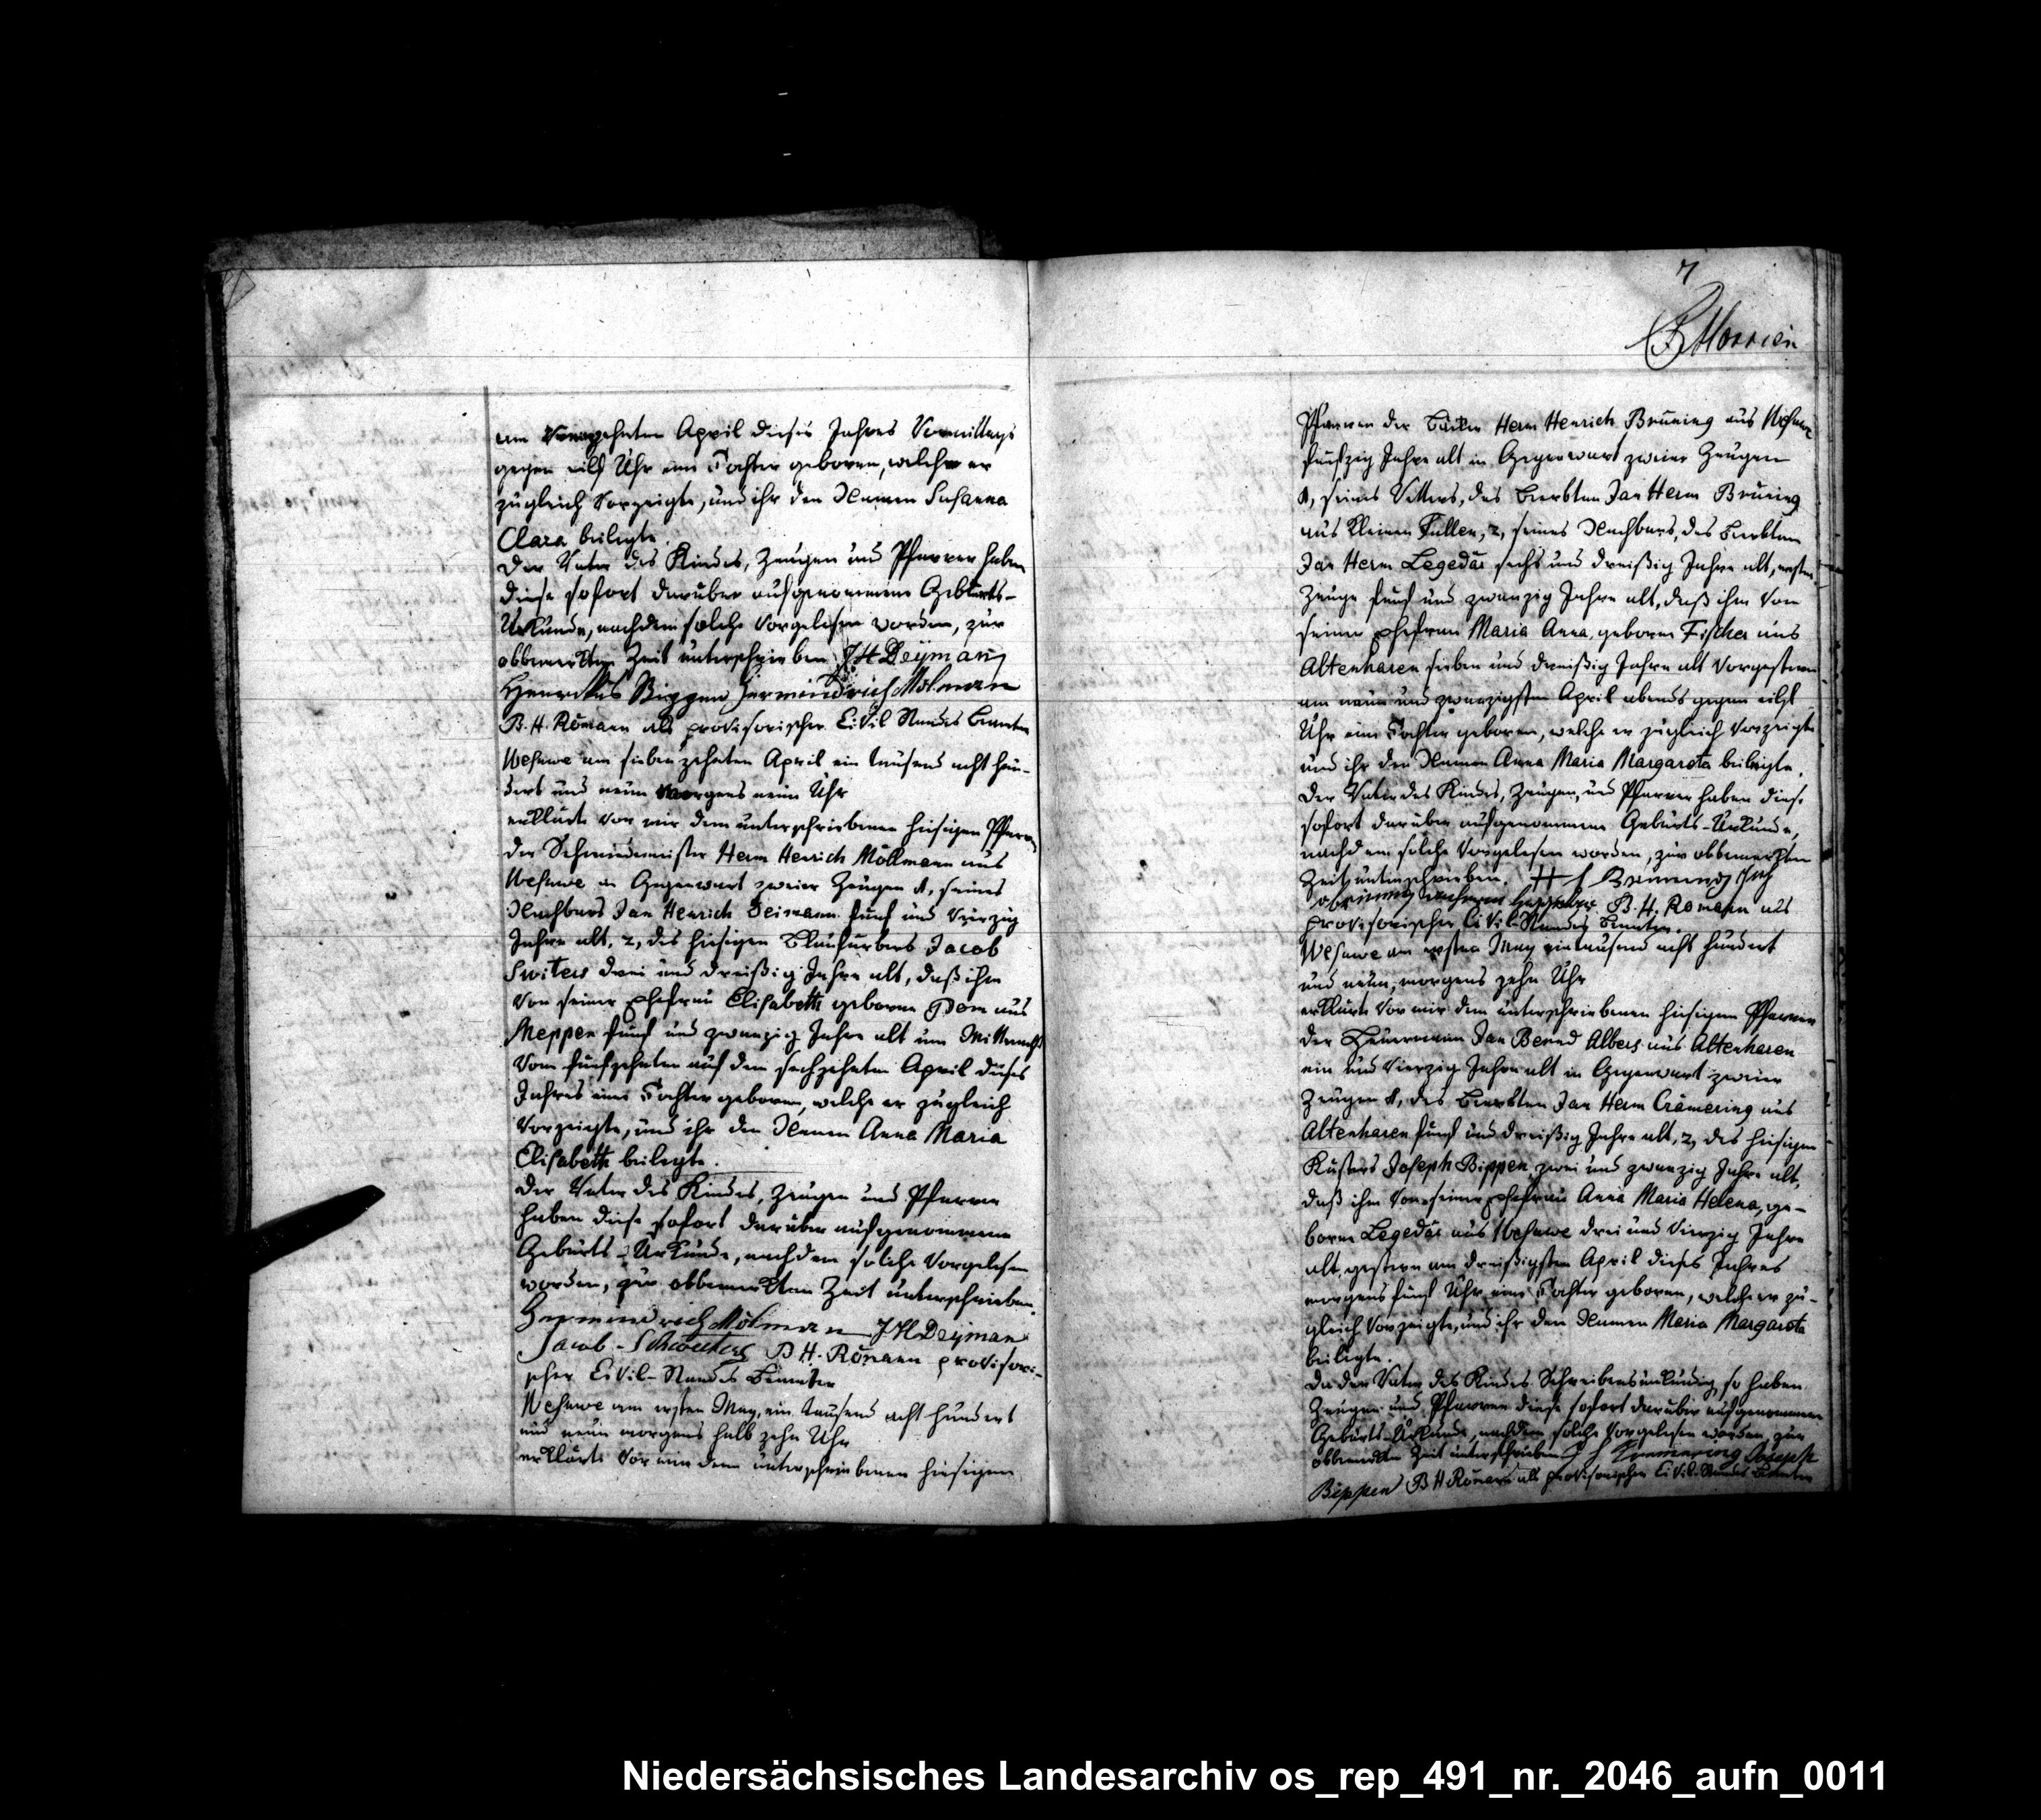 am vierzehnten April dieses Jahres Vormittags
gegen eilf Uhr eine Tochter geboren, welche er
zugleich Vorzeigte, und ihr den Namen Susanna
Clara beilegte.
Der Vater des Kindes, Zeugen und Pfarrer haben
diese sofort darüber aufgenommene Geburts-
Urkunde, nachdem solche Vorgelesen worden, zur
obbemerkten Zeit unterschrieben JH Deijman
Bippen Hermindrich Mölmann
B. H. Römann als provisorischer Civil Standes Beamter
Wesuwe am siebenzehnten April ein tausend acht hun-
dert und neun Morgens neun Uhr
erklärte vor mir dem unterschriebenen hiesigen Pfarrer
der Schmiedemeister Herm Henrich Möllmann aus
Wesuwe in Gegenwart zweier Zeugen 1, seines
Nachbars Jan Henrich Deimann fünf und Vierzig
Jahre alt, 2, des hiesigen Blaufärbers Jacob
Switers drei und dreißig Jahre alt, daß ihm
von seiner Ehefrau Elisabeth geborne aus
Meppen fünf und zwanzig Jahre alt um Mitternacht
Vom fünfzehnten auf den sechzehnten April dieses
Jahres eine Tochter geboren, welche er zugleich
Vorzeigte, und ihr den Namen Anna Maria
Elisabeth beilegte.
Der Vater des Kindes, Zeugen und Pfarrer
haben diese sofort darüber aufgenommene
Geburts-Urkunde, nachdem solche Vorgelesen
worden, zur obbemerkten Zeit unterschrieben.
Hermindrich Mölmann JH Deijman
Jacob - B H. Römann provisori-
scher Civil-Standes Beamter
Wesuwe am ersten May, ein tausend acht hundert
und neun morgens halb zehn Uhr
erklärte Vor mir dem unterschriebenen hiesigen
7
Pfarrer der Herm Henrich Brüning aus Wesuwe
fünfzig Jahre alt in Gegenwart zweier Zeugen
1, seines Vetters, des Beerbten Jan Herm Brüning
aus Kleinen Füllen, 2, seines Nachbars, des Beerbten
Jan Herm Legedär sechs und dreißig Jahre alt, erster
Zeuge fünf und zwanzig Jahre alt, daß ihm Von
seiner Ehefrau Maria Anna, geborne Fischer aus
Altenharen sieben und dreißig Jahre alt Vorgestern
am neun und zwanzigsten April abends gegen eilf
Uhr eine Tochter geboren, welche er zugleich Vorzeigte
und ihr den Namen Anna Maria Margareta beilegte.
Der Vater des Kindes, Zeugen, und Pfarrer haben diese
sofort darüber aufgenommene Geburts-Urkunde,
nachdem solche Vorgelesen worden, zur obbemerkten
Zeit unterschrieben. H
B. H. Römann als
provisorischer Civil-Standes Beamter.
Wesuwe am ersten May eintausend acht hundert
und neun, morgens zehn Uhr
erklärte Vor mir dem unterschriebenen hiesigen Pfarrer
der Heuermann Jan Berend Albers aus Altenharen
ein und Vierzig Jahre alt in Gegenwart zweier
Zeugen 1, des Beerbten Jan Herm Crämering aus
Altenharen fünf und dreißig Jahre alt, 2, des hiesigen
Küsters Joseph Bippen zwei und zwanzig Jahre alt,
daß ihm Von seiner Ehefrau Anna Maria Helena, ge-
borne Legedär aus Wesuwe drei und Vierzig Jahre
alt, gestern am dreißigsten April dieses Jahres
morgens fünf Uhr eine Tochter geboren, welche er zu-
gleich Vorzeigte, und ihr den Namen Maria Margareta
beilegte.
Da der Vater des Kindes Schreibensunkundig, so haben
Zeugen und Pfarrer diese sofort darüber aufgenommene
Geburts-Urkunde, nachdem solche Vorgelesen worden, zur
obbemerkten Zeit unterschrieben Joseph
Bippen B H Römann als provisorischer Civil-Standes Beamter
Niedersächsisches Landesarchiv os_rep_491_nr._2046_aufn_0011